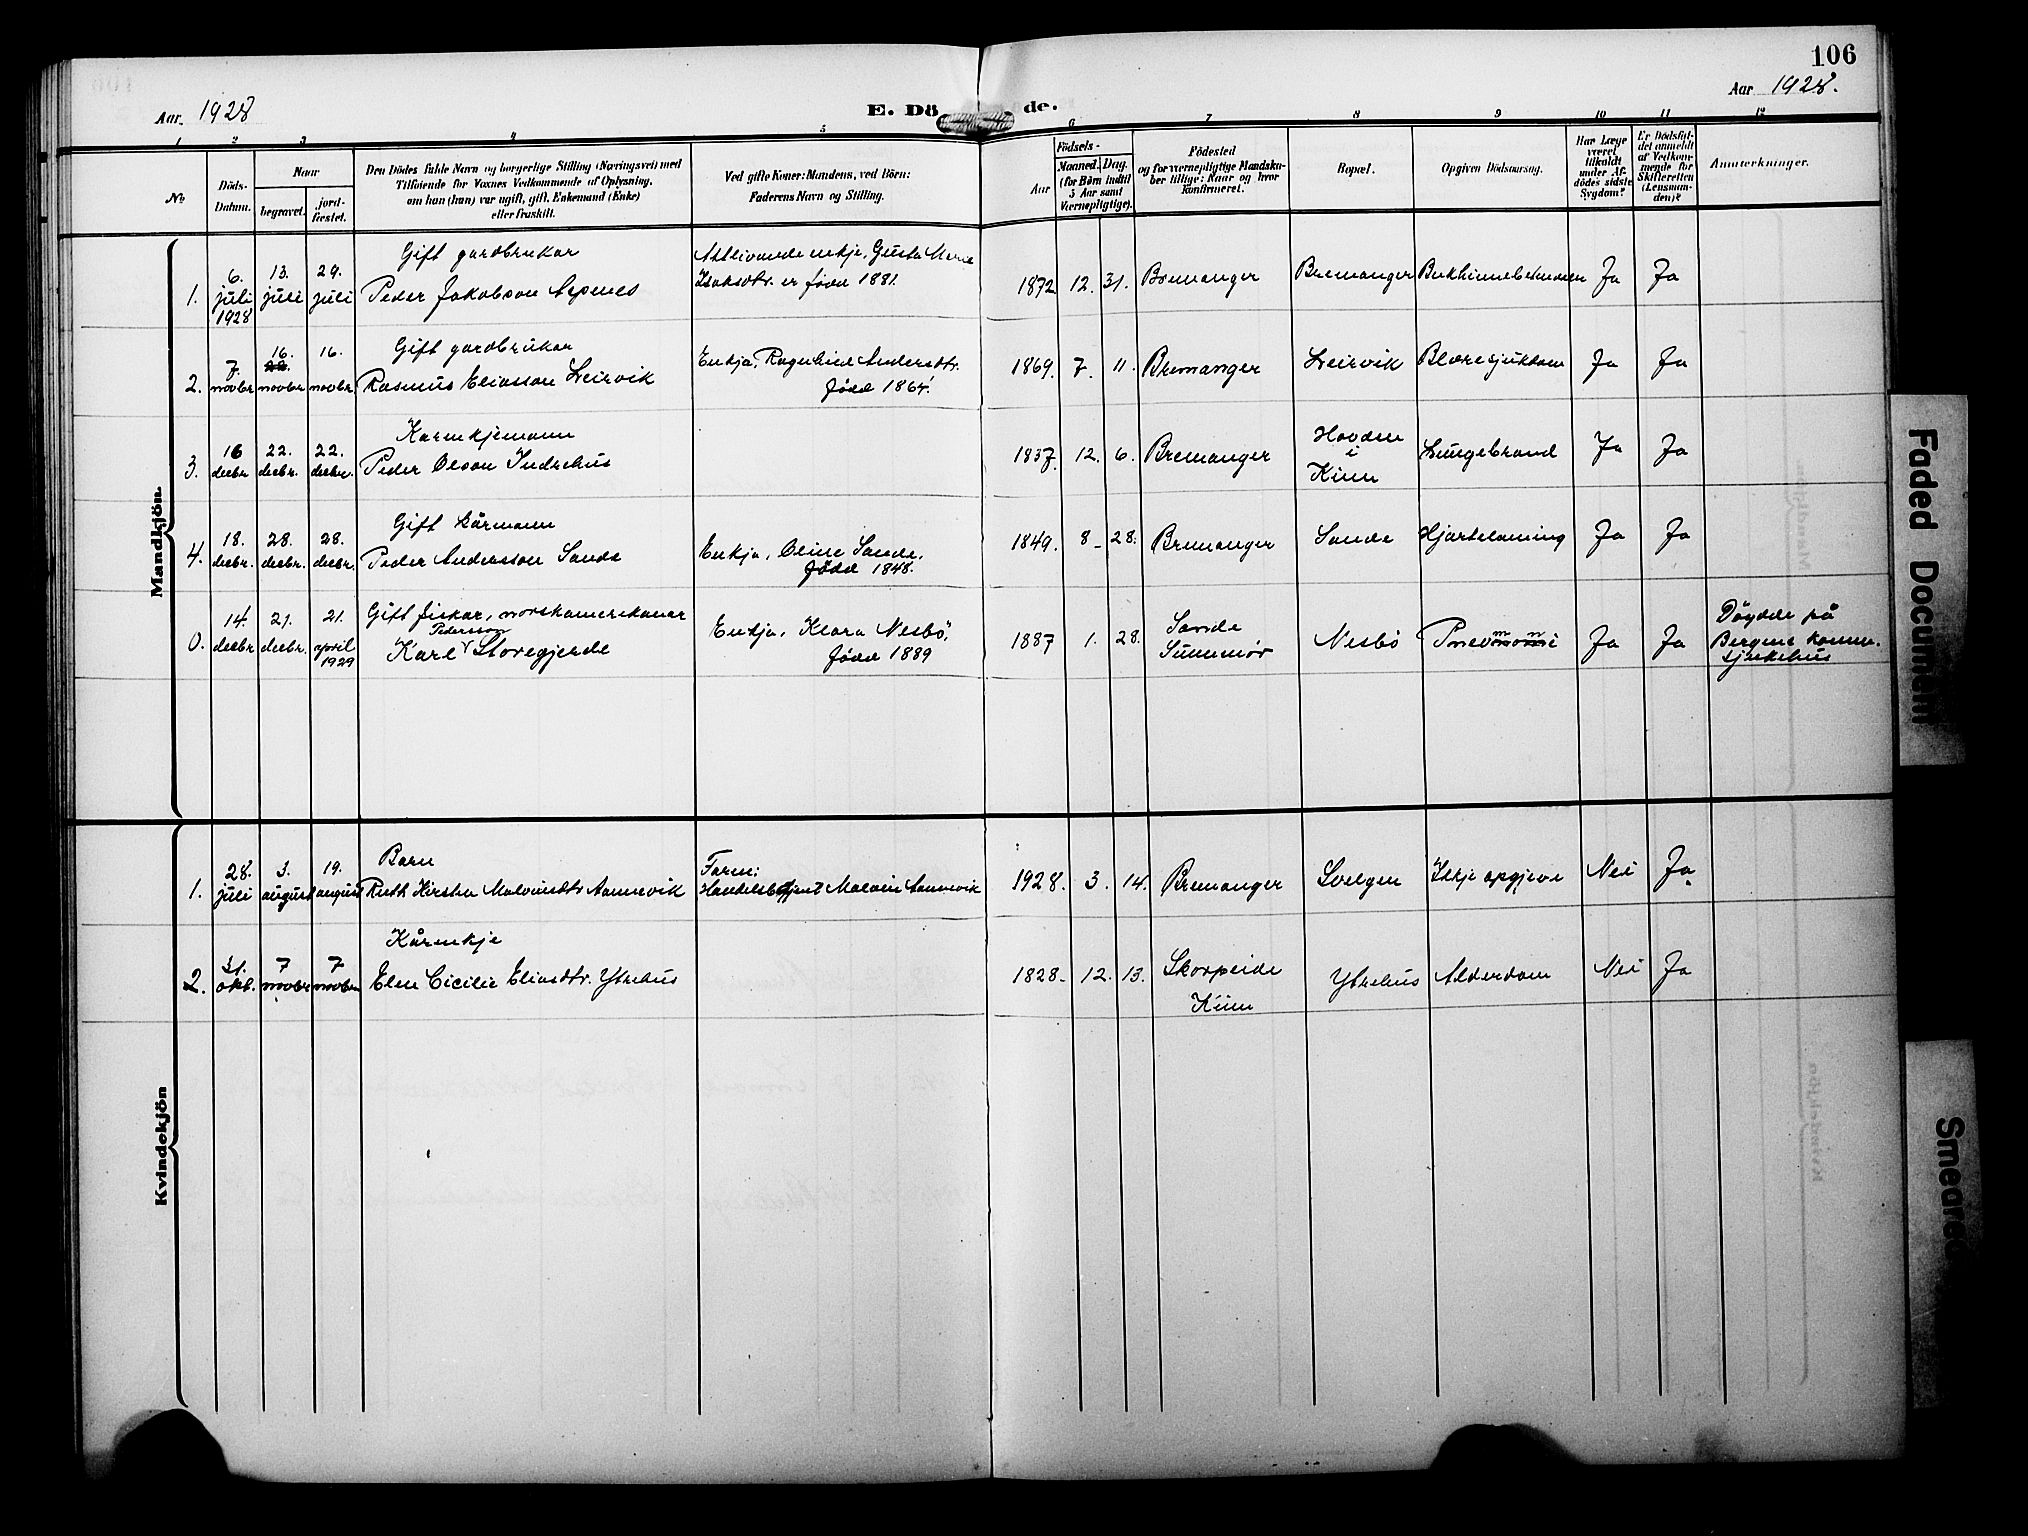 106
Aar 1928
E. Dö de.
Aar 1928.
1 2 3 4 5 6 7 8 9 10 11 12
No
Döds-
Datum.
Naar
begravet.
jord-
fæstet.
Den Dödes fulde Navn og borgerlige Stilling (Næringsvei) med
Tilföiende for Voxnes Vedkommende af Oplysning,
om han (hun) var ugift, gift, Enkemand (Enke)
eller fraskilt.
Ved gifte Koner: Mandens, ved Börn:
Faderens Navn og Stilling.
Födsels-
Aar
Maaned. Dag.
(for Börn indtil
5 Aar samt
Værnepligtige).
Födested
og for værnepligtige Mandsku-
ber tillige: Naar og hvor
konfirmeret.
Bopæl.
Opgiven Dödsaarsag.
Har Læge
været
tilkaldt
under Af-
dödes sidste
Sygdom?
Er Dödsfal-
det anmeldt
af Vedkom-
mende for
Skifteretten
(Lensman-
den)?
Anmærkninger.
Mandkjön.
1. 6. juli 1928 13. juli 29. juli
Gift gardbrukar
Peder Jakobson
Attlivande enkje, Gusta
er född 1881.
1872 12. 31. Bremanger Bremanger Ja Ja
2. 7. novbr 16. novbr 16. novbr.
Gift gardbrukar
Rasmus Eliasson Leirvik
Enkja, Ragnhild Andersdtr.
född 1864.
1869. 7. 11. Bremanger Leirvik Blæresjukdom Ja Ja
3. 16 decbr 22. decbr. 22. decbr.
Kårenkjemann
Peder Olson Indrehus
1837. 12. 6. Bremanger
Hovden
i
Kinn
Lungebrand Ja Ja
4. 18. decbr. 28. decbr. 28. decbr.
Gift kårmann
Peder Andersson Sande
Enkja, Oline Sande,
född 1848.
1849. 8 - 28. Bremanger Sande Hjartelaming Ja Ja
0. 14. decbr 21. decbr. 21. april 1929
Gift fiskar, norskamerikanar
Pedersson
Karl Storegjerde
Enkja, Klara Nesbö,
född 1889
1887 1. 28.
Sande
Sunnmör
Nesbö Ja Ja
Döydde på
Bergens komm.
sjukehus
Kvindekjön
1. 28. juli 3. august 19. august
Barn
Ruth Kirsten Malvinsdtr Aannevik
Faren:
Handelsbetjent Malvin Aannevik
1928. 3. 14. Bremanger Svelgen Ikkje opgjeve Nei Ja
2. 31. okt. 7 novbr 7 novbr
Kårenkje
Elen Cicilie Eliasdtr. Ytrehus
1828. 12. 13.
Skorpeide
Kinn
Ytrehus Alderdom Nei Ja
Faded Document
Smeared